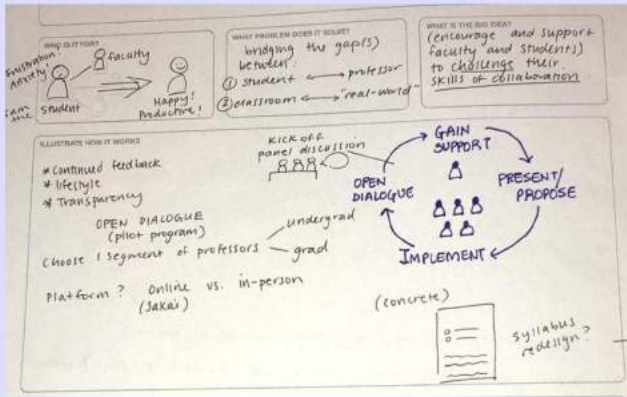 WHO IS IT FOR?
Frustration!
Anxiety!
faculty
student
Happy!
Productive!
WHAT PROBLEM DOES IT SOLVE?
bridging the gap(s)
between:
① student ⟷ professor
② classroom ⟷ "real-world"
WHAT IS THE BIG IDEA?
(encourage and support
faculty and students)
to challenge their
skills of collaboration
ILLUSTRATE HOW IT WORKS
* Continued feedback
* lifestyle
* Transparency
OPEN DIALOGUE
(pilot program)
Choose 1 segment of professors
undergrad
grad
Platform? Online vs. in-person
(Sakai)
Kick off
panel discussion
GAIN
SUPPORT
PRESENT/
PROPOSE
IMPLEMENT
OPEN
DIALOGUE
(concrete)
syllabus
redesign?